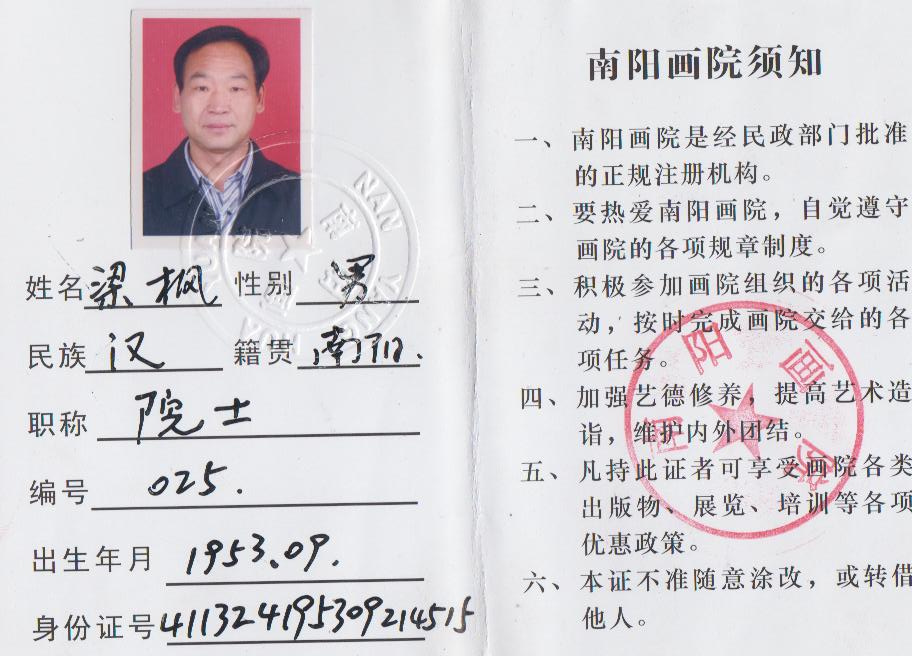 姓名 梁枫 性别 男
民族 汉 籍贯 南阳.
职称 院士
编号 025.
出生年月 1953.09.
身份证号 411324195309214515
NAN
南阳画院须知
一、南阳画院是经民政部门批准
的正规注册机构。
二、要热爱南阳画院，自觉遵守
画院的各项规章制度。
三、积极参加画院组织的各项活
动，按时完成画院交给的各
项任务。
四、加强艺德修养，提高艺术造
诣，维护内外团结。
五、凡持此证者可享受画院各类
出版物、展览、培训等各项
优惠政策。
六、本证不准随意涂改，或转借
他人。
南阳画院